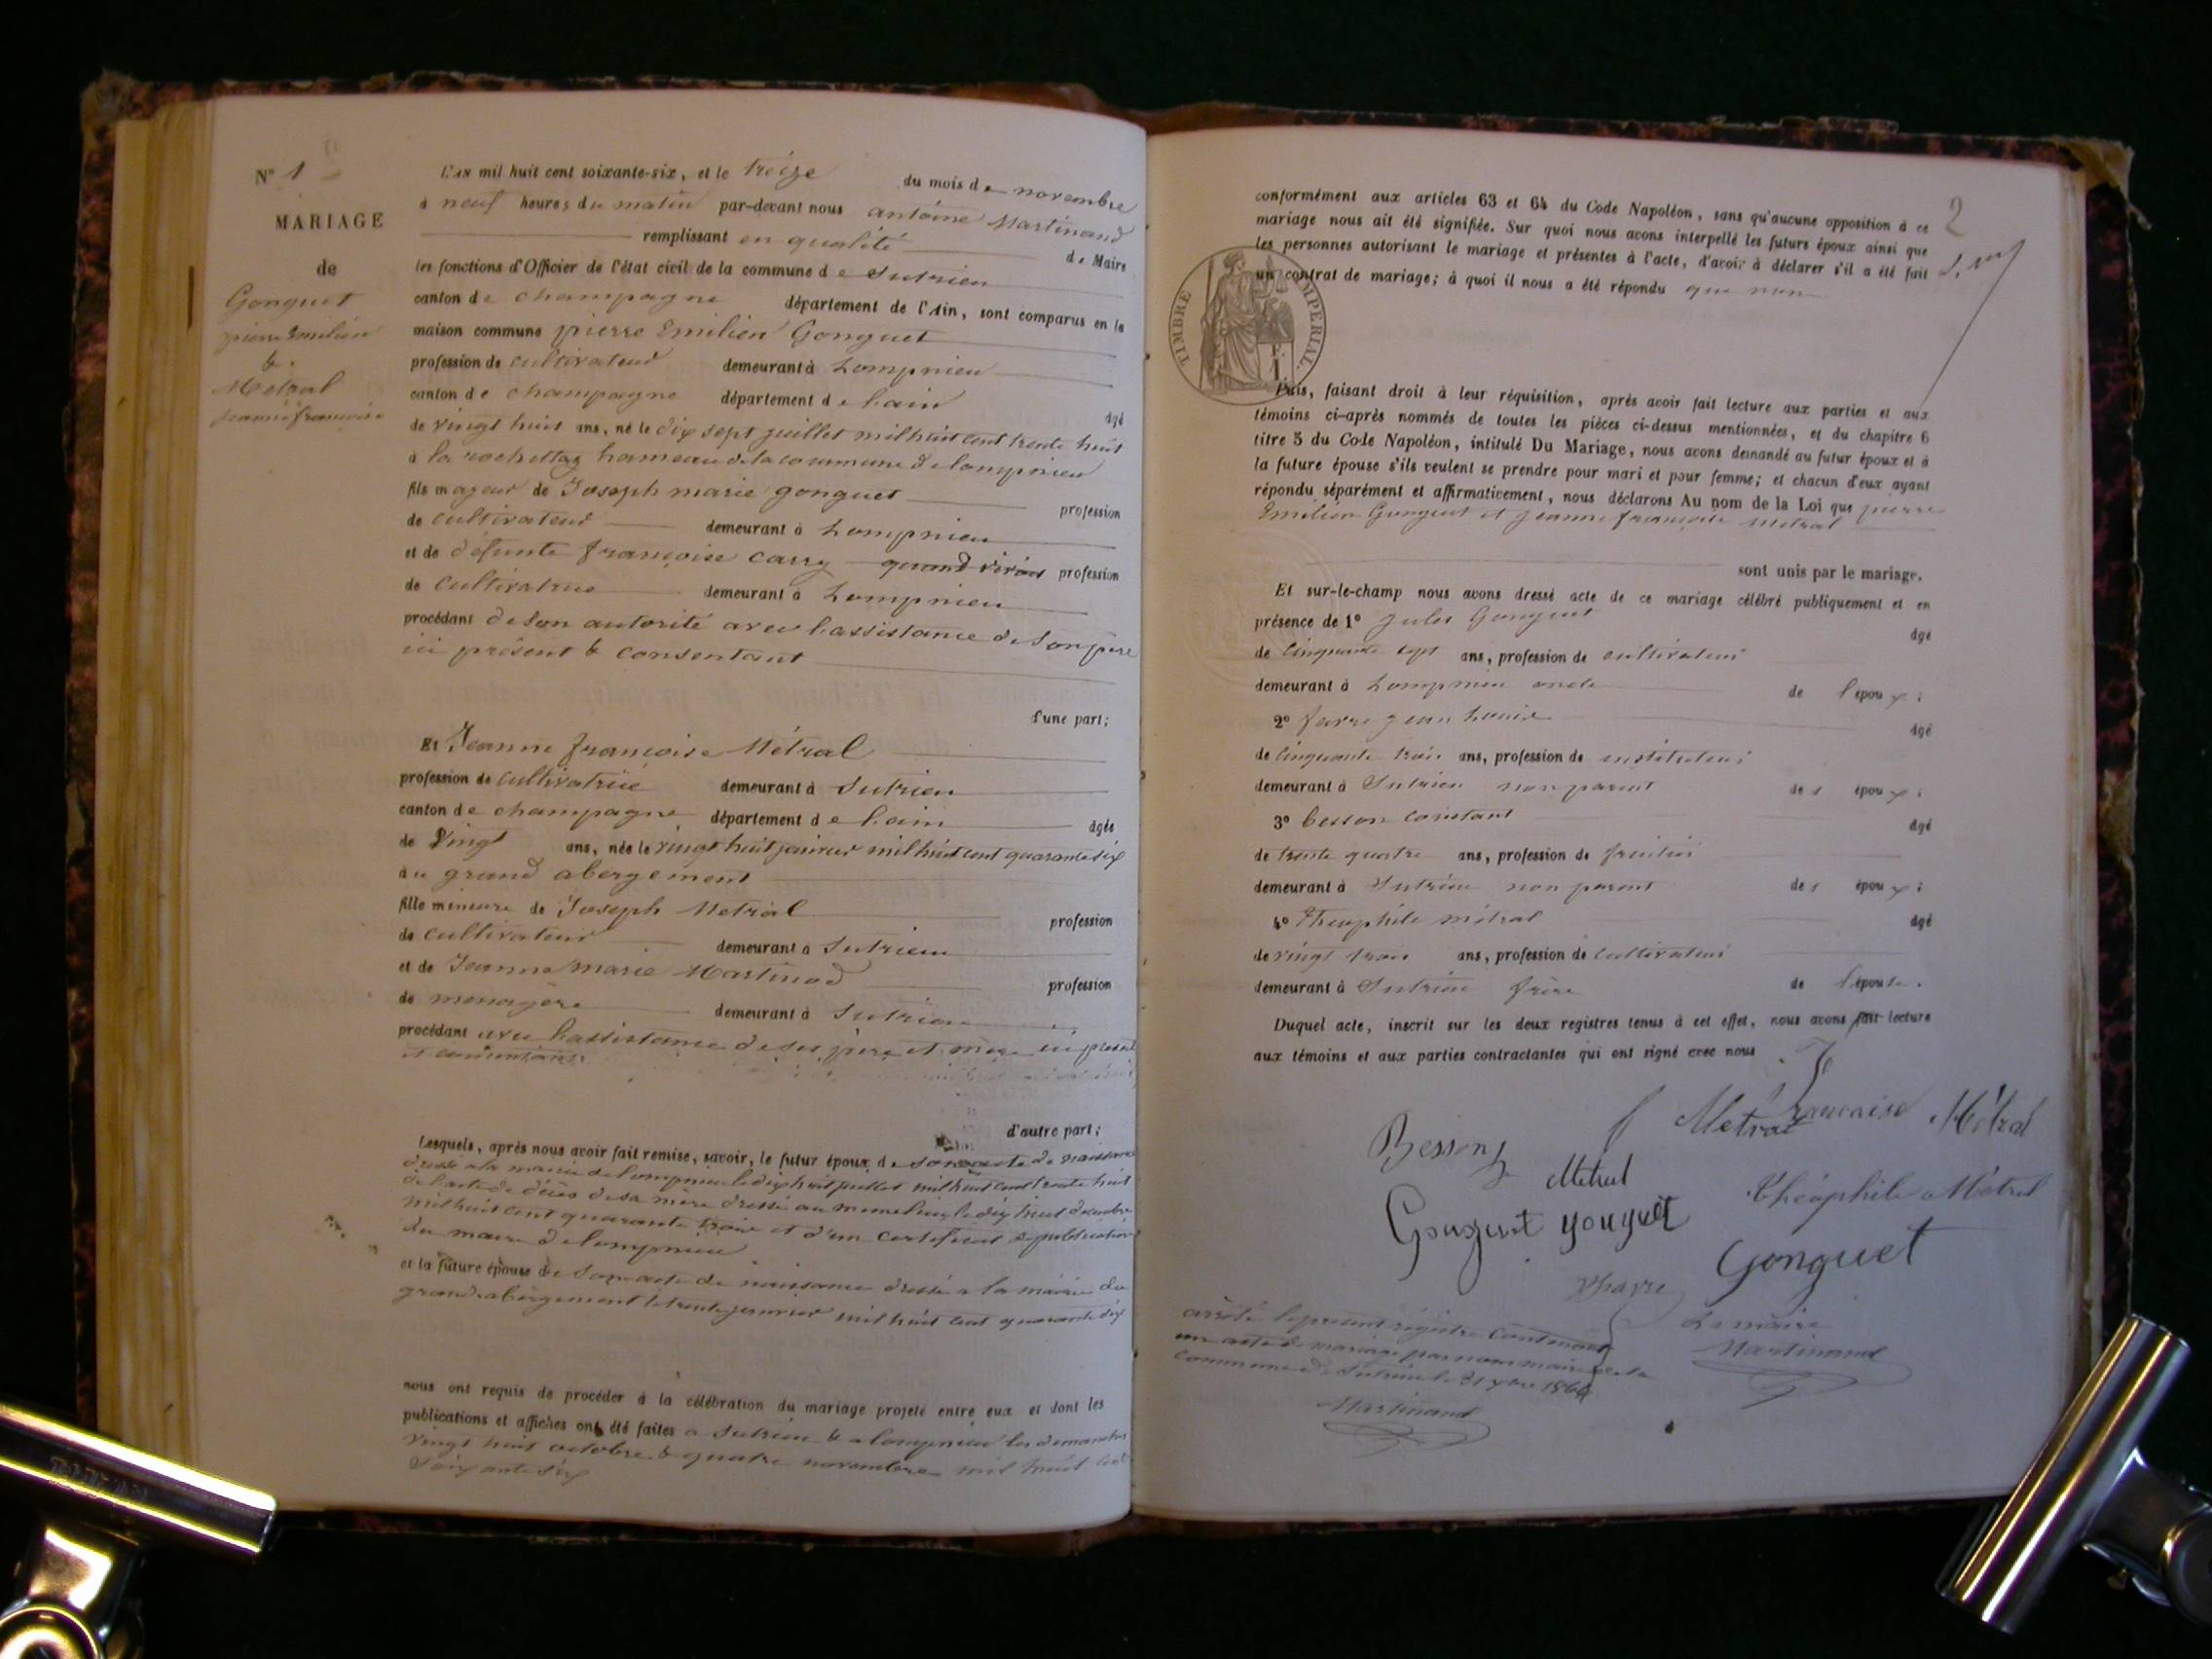 N° 1
MARIAGE
de
Gonguet
pierre Emilien
&
Métral
jeanne françoise
L'AN mil huit cent soixante-six, et le treize du mois de novembre
à neuf heures du matin par-devant nous antoine Martinand
remplissant en qualité de Maire
les fonctions d'Officier de l'état civil de la commune de Sutrieu
canton de champagne département de l'Ain, sont comparus en la
maison commune pierre Emilien Gonguet
profession de cultivateur demeurant à Lompnieu
canton de champagne département de l'ain âgé
de vingt huit ans, né le dix sept juillet mil huit cent trente huit
à la rochettaz hameau de la commune de lompnieu
fils majeur de Joseph marie gonguet profession
de cultivateur demeurant à Lompnieu
et de défunte françoise carry quand vivait profession
de cultivatrice demeurant à Lompnieu
procédant de son autorité avec l'assistance de son père
ici présent & consentant
d'une part;
Et Jeanne françoise Métral
profession de cultivatrice demeurant à Sutrieu
canton de champagne département de l'ain âgée
de vingt ans, née le vingt huit janvier mil huit cent quarante six
au grand abergement
fille mineure de Joseph Metral profession
de cultivateur demeurant à Sutrieu
et de Jeanne marie Martinod profession
de menagère demeurant à Sutrieu
procédant avec l'assistance de ses père et mère ici présent
et consentants
d'autre part;
Lesquels, après nous avoir fait remise, savoir, le futur époux de son acte de naissance
dressé a la mairie de lompnieu le dix huit juillet mil huit cent trente huit
de l'acte de décès de sa mère dressé au même lieu le dix huit décembre
mil huit cent quarante trois et d'un certificat de publication
du maire de lompnieu
et la future épouse de son acte de naissance dressé a la mairie du
grand abergement le trente janvier mil huit cent quarante six
nous ont requis de procéder à la célébration du mariage projeté entre eux et dont les
publications et affiches ont été faites a Sutrieu & a lompnieu les dimanches
vingt huit octobre & quatre novembre mil huit cent
soixante six
2
conformément aux articles 63 et 64 du Code Napoléon, sans qu'aucune opposition à ce
mariage nous ait été signifiée. Sur quoi nous avons interpellé les futurs époux ainsi que
les personnes autorisant le mariage et présentes à l'acte, d'avoir à déclarer s'il a été fait
un contrat de mariage; à quoi il nous a été répondu que non
TIMBRE IMPERIAL
Puis, faisant droit à leur réquisition, après avoir fait lecture aux parties et aux
témoins ci-après nommés de toutes les pièces ci-dessus mentionnées, et du chapitre 6
titre 5 du Code Napoléon, intitulé Du Mariage, nous avons demandé au futur époux et à
la future épouse s'ils veulent se prendre pour mari et pour femme; et chacun d'eux ayant
répondu séparément et affirmativement, nous déclarons Au nom de la Loi que pierre
Emilien Gonguet et Jeanne françoise métral
sont unis par le mariage.
Et sur-le-champ nous avons dressé acte de ce mariage célébré publiquement et en
présence de 1° Jules Gonguet âgé
de cinquante sept ans, profession de cultivateur
demeurant à Lompnieu oncle de l'époux;
2° favre jean Louis âgé
de cinquante trois ans, profession de instituteur
demeurant à Sutrieu non parent des époux;
3° besson constant âgé
de trente quatre ans, profession de fruitier
demeurant à Sutrieu non parent des époux;
4° Théophile métral âgé
de vingt trois ans, profession de cultivateur
demeurant à Sutrieu frère de l'épouse.
Duquel acte, inscrit sur les deux registres tenus à cet effet, nous avons fait lecture
aux témoins et aux parties contractantes qui ont signé avec nous.
Besson Metral françoise Métral
Metral Théophile Métral
Gonguet gonguet Gonguet
Le maire
Martinand
arrêté le présent registre contenant
un acte de mariage par nous maire de la
commune de Sutrieu le 31 xbre 1866
Martinand